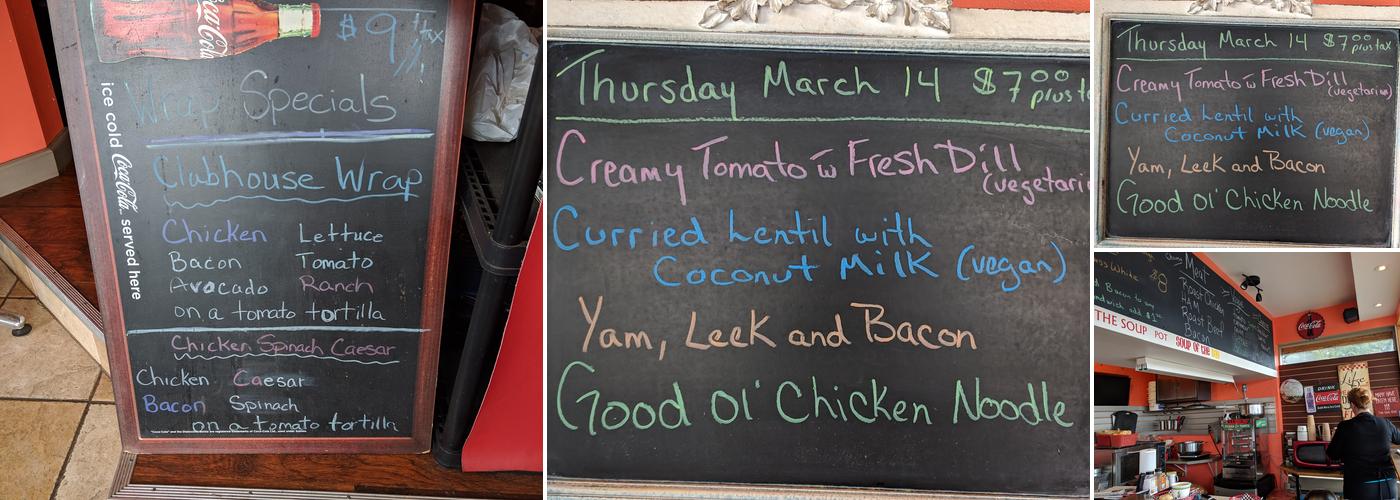 Coca-Cola
$9 + tax
Wrap Specials
ice cold Coca-Cola served here
Clubhouse Wrap
Chicken Lettuce
Bacon Tomato
Avocado Ranch
on a tomato tortilla
Chicken Spinach Caesar
Chicken Caesar
Bacon Spinach
on a tomato tortilla
Thursday March 14 $7.00
plus t
Creamy Tomato w Fresh Dill
(vegetari
Curried Lentil with
Coconut Milk (vegan)
Yam, Leek and Bacon
Good Ol' Chicken Noodle
Thursday March 14 $7.00
plus tax
Creamy Tomato w Fresh Dill
(vegetarian)
Curried Lentil with
Coconut Milk (vegan)
Yam, Leek and Bacon
Good Ol' Chicken Noodle
Meat
White $8
Roast Chicken
Ham
Roast Beef
Bacon
Bacon to any
THE SOUP POT SOUP OF THE
Coca-Cola
DRINK
Coca-Cola